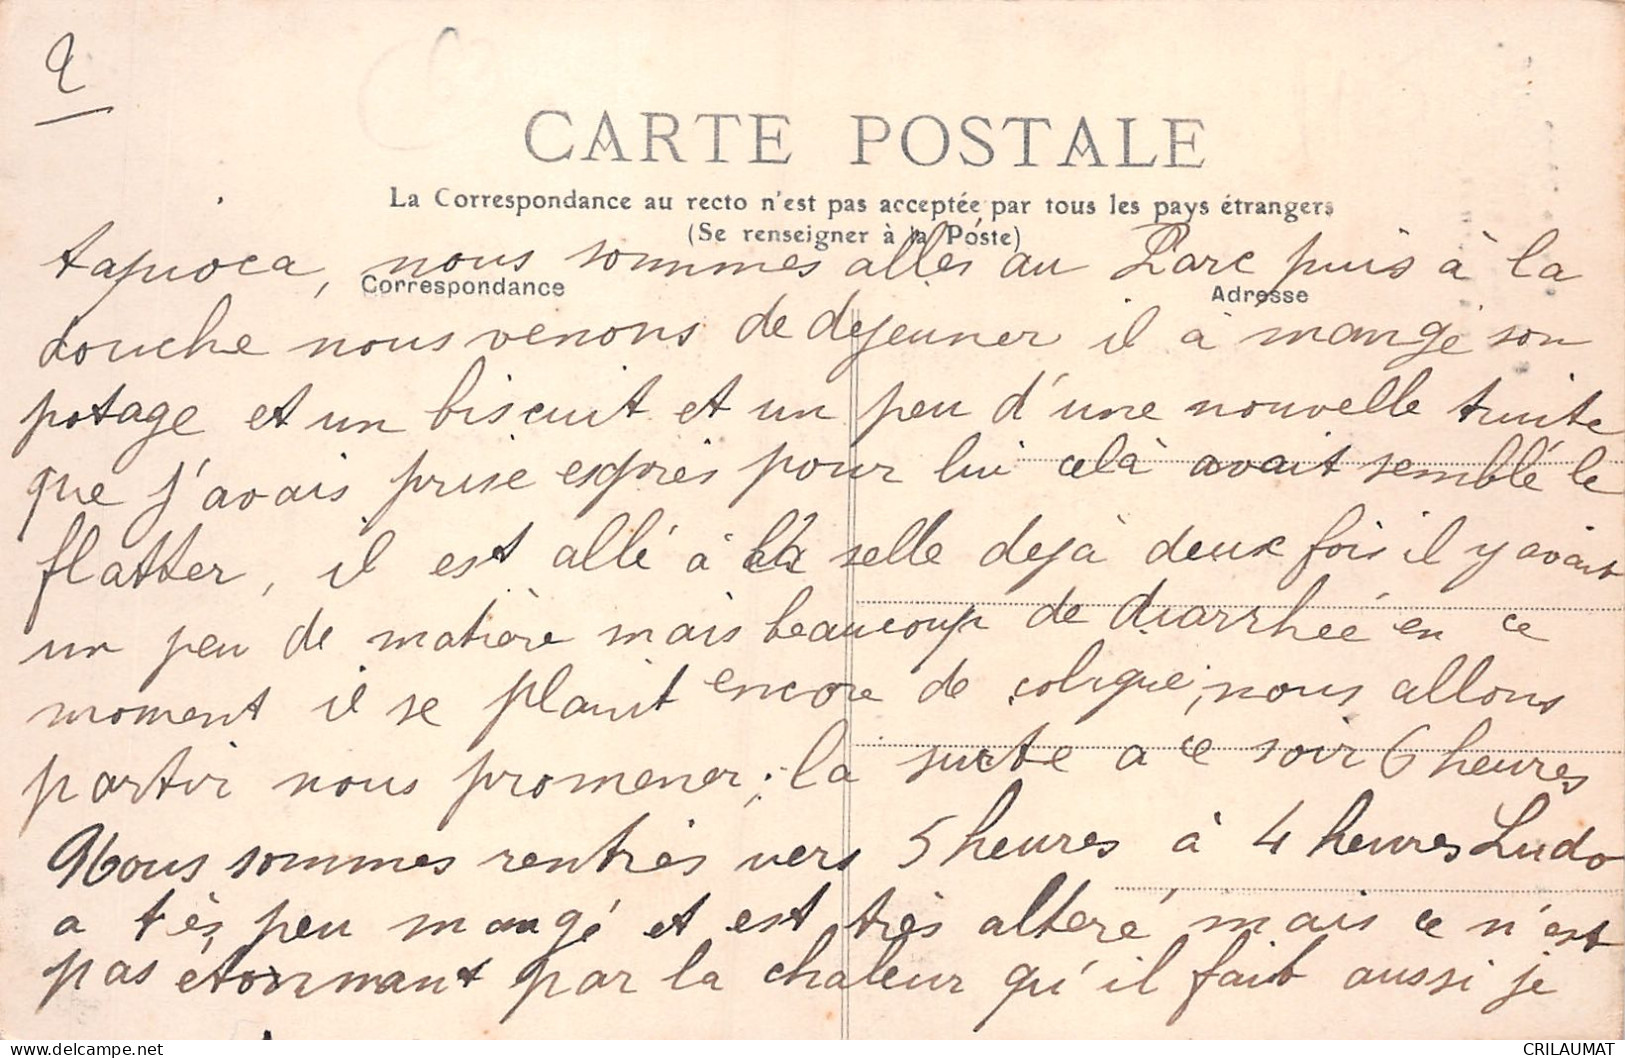 2
CARTE POSTALE
La Correspondance au recto n'est pas acceptée par tous les pays étrangers
(Se renseigner à la Poste)
tapioca, nous sommes allés au Parc puis à la
Correspondance
Adresse
douche nous venons de dejeuner il à mangé son
potage et un biscuit et un peu d'une nouvelle truite
que j'avais prise esqprès pour lui celà avait semblé le
flatter, il est allé à la selle dejà deux fois il y avait
un peu de matière mais beaucoup de diarrhée en ce
moment il se plaint encore de colique, nous allons
partir nous promener; la suite a ce soir 6 heures
Nous sommes rentrés vers 5 heures à 4 heures Ludo
a tès peu mangé et est très alteré mais ce n'est
pas étonnant par la chaleur qu'il fait aussi je
CRILAUMAT